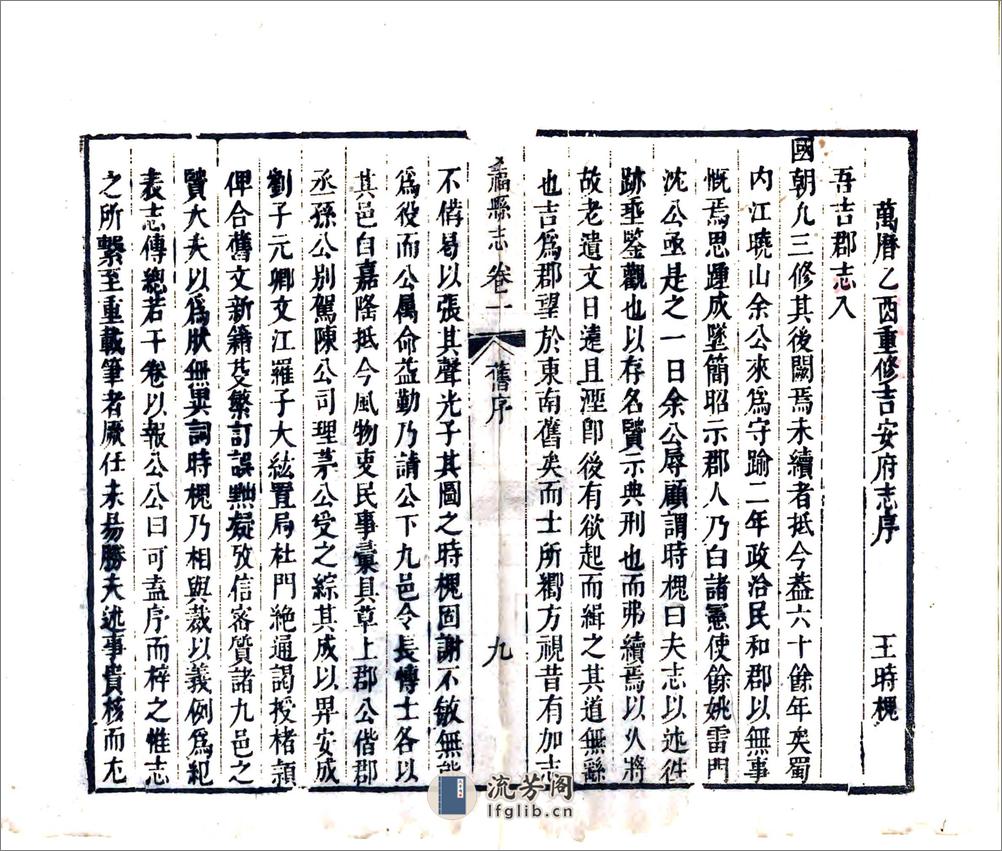 萬曆乙酉重修吉安府志序 王時槐
吾吉郡志入
國朝凡三修其後闕焉未續者抵今葢六十餘年矣蜀
內江曉山余公來為守踰二年政洽民和郡以無事
慨焉思踵成墜簡昭示郡人乃白諸憲使餘姚雷門
沈公亟是之一日余公辱顧謂時槐曰夫志以述徃
跡垂鑒觀也以存名賢示典刑也而弗續焉以乆將
故老遺文日遠且湮卽後有欲起而緝之其道無繇
也吉爲郡望於東南舊矣而士所嚮方視昔有加志
福縣志 卷一 舊序 九
不偹曷以張其聲光子其圖之時槐固謝不敏無能
爲役而公属命益勤乃請公下九邑令長愽士各以
其邑自嘉隆抵今風物吏民事彚具草上郡公偕郡
丞孫公別駕陳公司理茅公受之綜其成以畀安成
劉子元卿文江羅子大紘置局杜門絶通謁授楮頴
俾合舊文新籍芟繁訂誤黜疑攷信審質諸九邑之
賢大夫以爲狀無異詞時槐乃相與裁以義例爲紀
表志傳總若干卷以報公公曰可盍序而梓之惟志
之所繫至重載筆者厥任未昜勝夫述事貴核而尢
流芳阁
lfglib.cn